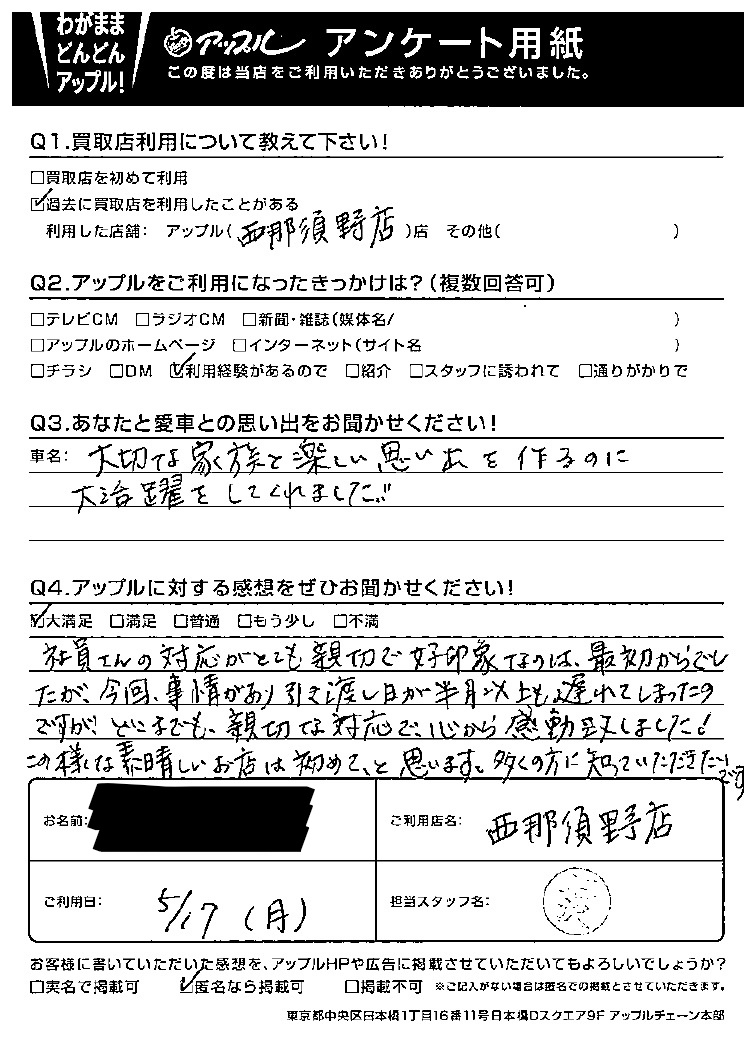 わがまま
どんどん
アップル!
アップル アンケート用紙
この度は当店をご利用いただきありがとうございました。
Q1.買取店利用について教えて下さい!
□買取店を初めて利用
☑過去に買取店を利用したことがある
利用した店舗: アップル(西那須野店)店 その他( )
Q2.アップルをご利用になったきっかけは?(複数回答可)
□テレビCM □ラジオCM □新聞・雑誌(媒体名/ )
□アップルのホームページ □インターネット(サイト名 )
□チラシ □DM ☑利用経験があるので □紹介 □スタッフに誘われて □通りがかりで
Q3.あなたと愛車との思い出をお聞かせください!
車名: 大切な家族と楽しい思い出を作るのに
大活躍をしてくれました!!
Q4.アップルに対する感想をぜひお聞かせください!
☑大満足 □満足 □普通 □もう少し □不満
社員さんの対応がとても親切で好印象なのは、最初からでし
たが、今回、事情があり引き渡し日が半月以上も遅れてしまったの
ですが、どこまでも、親切な対応で、心から感動致しました!
この様な素晴しいお店は初めて、と思います。多くの方に知っていただきたいです
お名前:
ご利用店名: 西那須野店
ご利用日: 5/17 (月)
担当スタッフ名:
お客様に書いていただいた感想を、アップルHPや広告に掲載させていただいてもよろしいでしょうか?
□実名で掲載可 ☑匿名なら掲載可 □掲載不可 ※ご記入がない場合は匿名での掲載とさせていただきます。
東京都中央区日本橋1丁目16番11号日本橋Dスクエア9F アップルチェーン本部